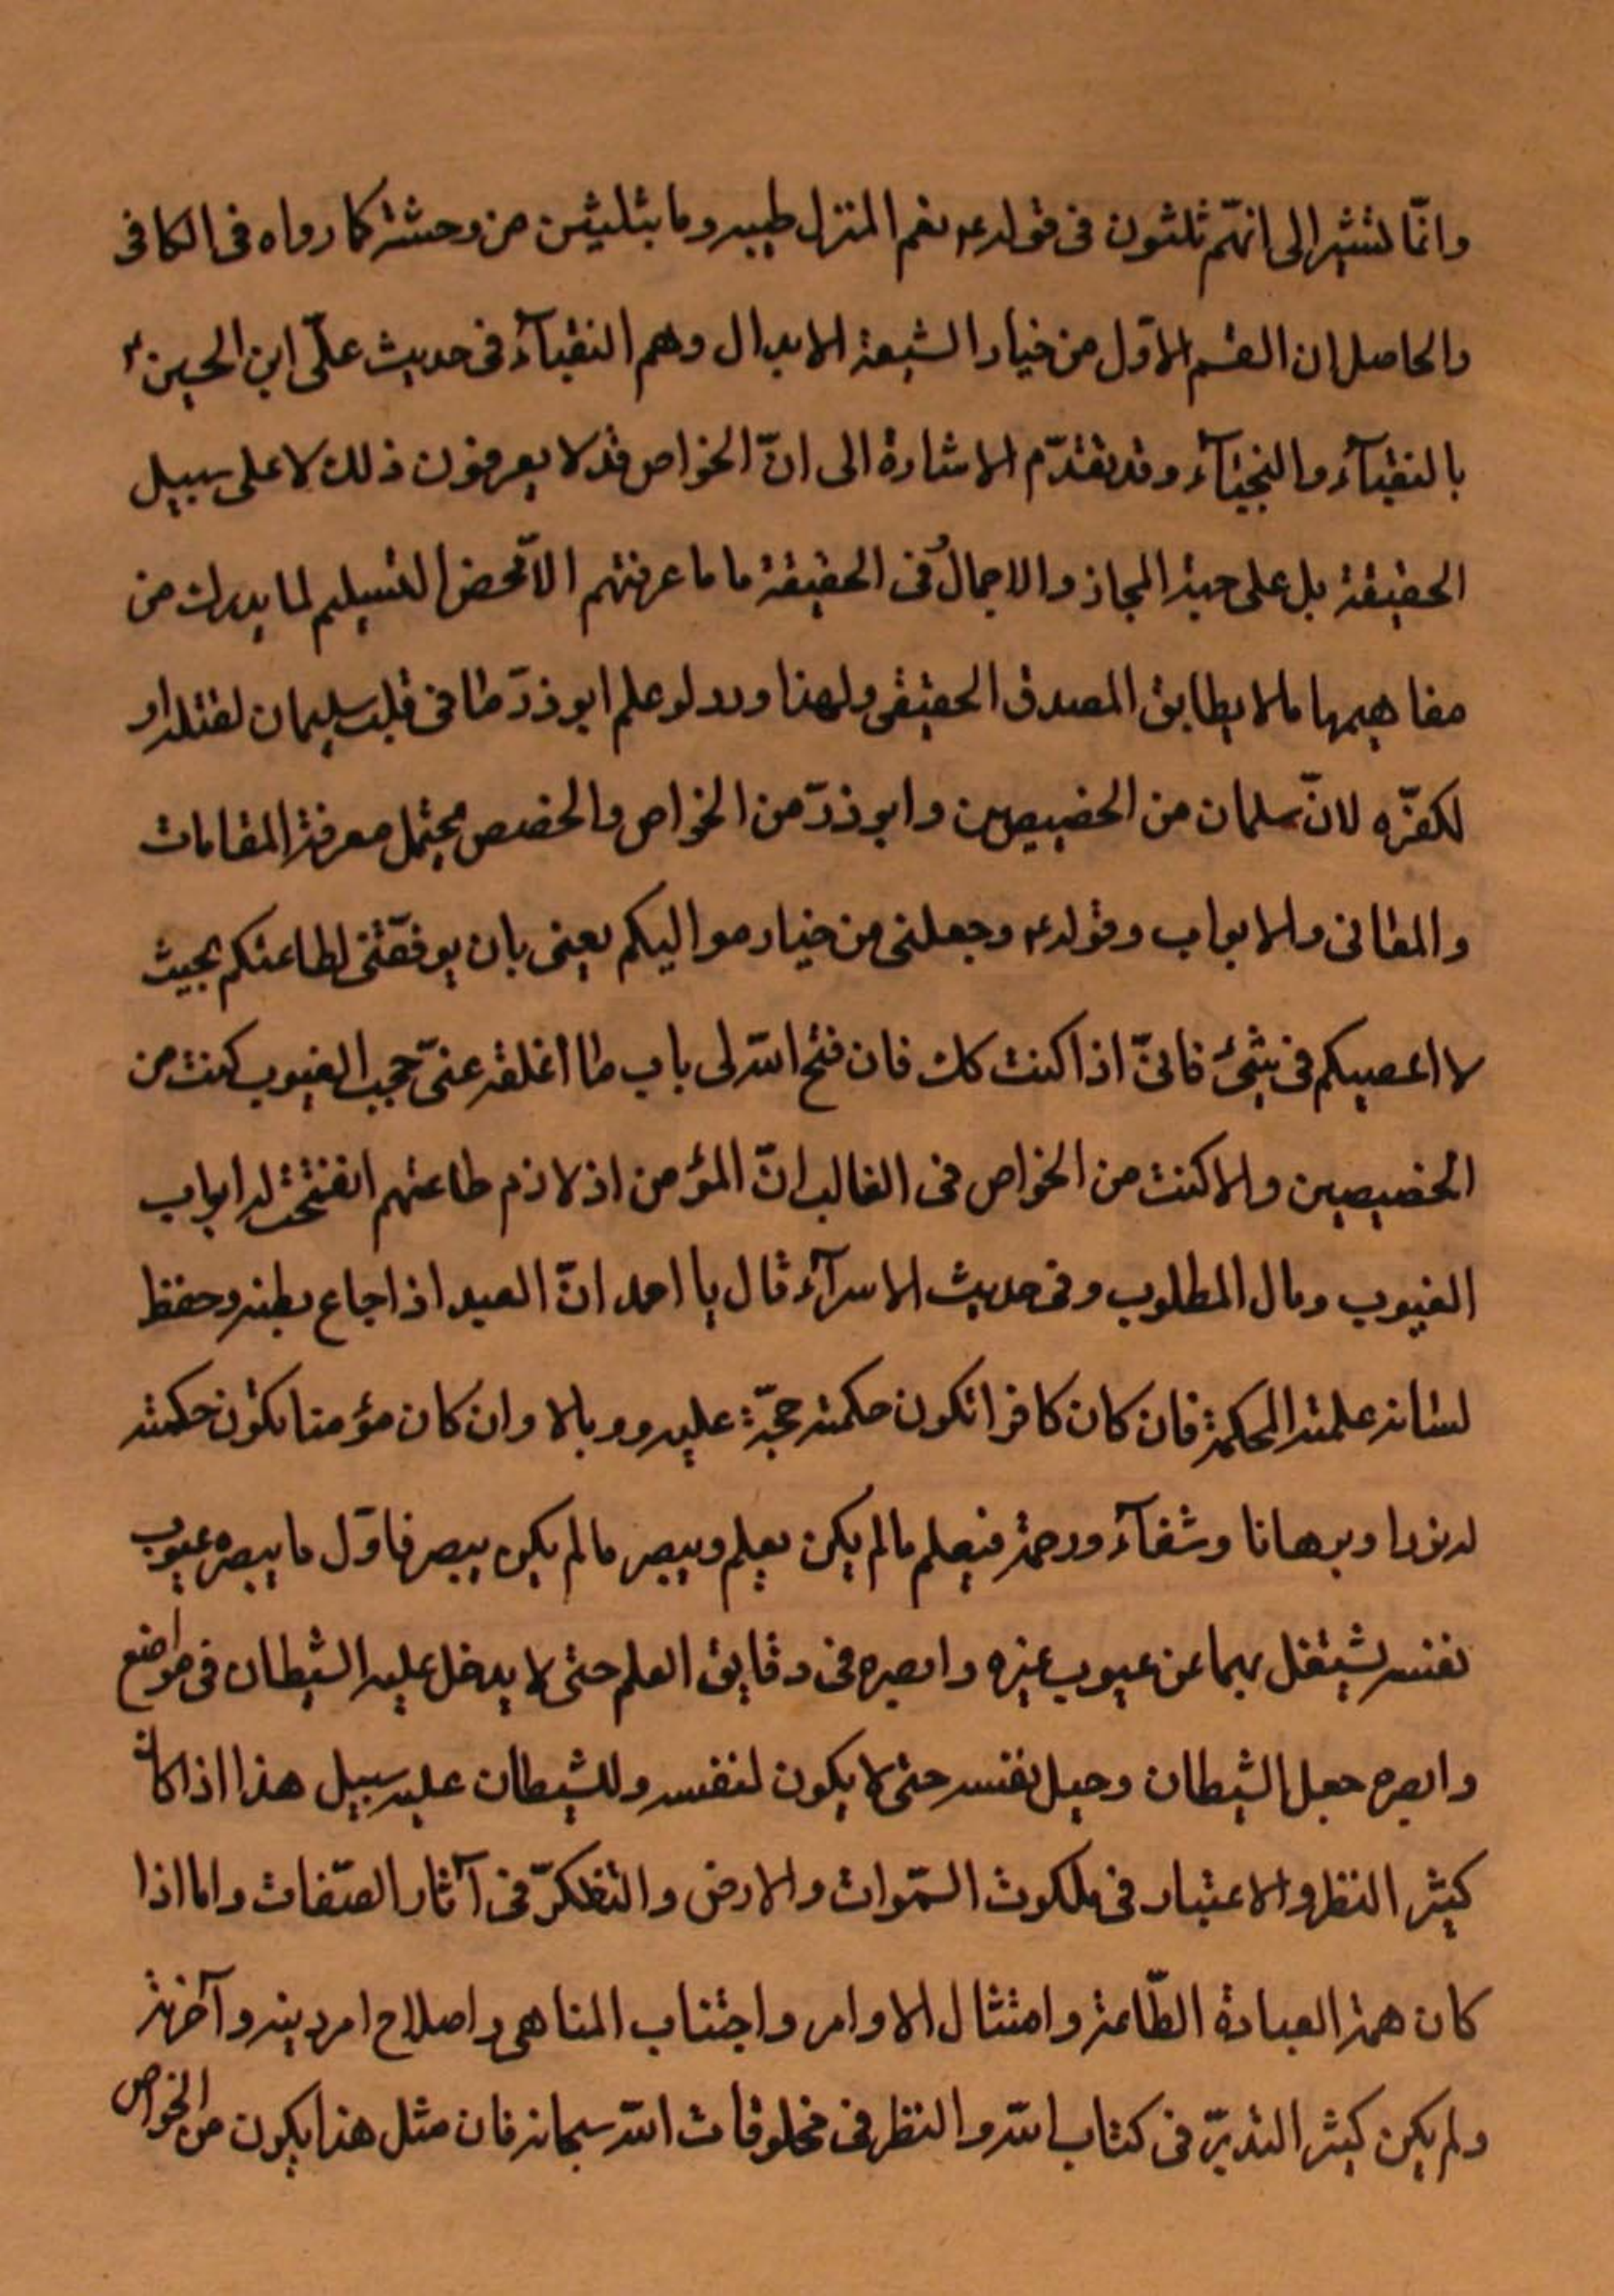 وانّما تشير الى انهّم ثلثون فى قوله ع نعم المنزل طيبه وما بثلثين من وحشة كما رواه فى الكافى
والحاصل ان القسم الاوّل من خيار الشيعة الابدال وهم النقبآء فى حديث علّى ابن الحسين ع
بالنقبآء والنجبآء وقد تقدّم الاشارة الى انّ الخواص قد لا يعرفون ذلك لا على سبيل
الحقيقة بل على جهة المجاز والاجمال فى الحقيقة ما ما عرفتهم الّا محض التسليم لما يدرك من
مفاهيمها ما لا يطابق المصدق الحقيقى ولهذا ورد لو علم ابو ذرّ ما فى قلب سليمان لقتله او
لكفّره لانّ سلمان من الخصيصين وابو ذرّ من الخواص والخصص يحتمل معرفة المقامات
والمعانى والابواب وقوله ع وجعلنى من خيار مواليكم يعنى بان يوفقّنى لطاعتكم بحيث
لا اعصيكم فى شئ فانىّ اذا كنت كك فان فتح الله لى باب ما اغلقه عنىّ حجب الغيوب كنت من
الخصيصين والا كنت من الخواص فى الغالب انّ المؤمن اذ لازم طاعتهم انفتحت له ابواب
الغيوب ومال المطلوب وفى حديث الاسرآء قال يا احمد انّ العبد اذا جاع بطنه وحفظ
لسانه علمته الحكمة فان كان كافرا تكون حكمته حجّة عليه ووبالا وان كان مؤمنا تكون حكمته
له نورا وبرهانا وشفآء ورحمة فيعلم ما لم يكن يعلم ويبصر ما لم يكن يبصر فاوّل ما يبصره عيوب
نفسه يشتغل بهما عن عيوب غيره وابصره فى دقايق العلم حتى لا يدخل عليه الشيطان فى مواضع
وابصره حيل الشيطان وحيل نفسه حتى لا يكون لنفسه وللشيطان عليه سبيل هذا اذا كان
كثير النظر والاعتبار فى ملكوت السّموات والارض والتفكرّ فى آثار الصّفات واما اذا
كان همة العبادة الطّاعة وامتثال الاوامر واجتناب المناهى واصلاح امر دينه وآخرته
ولم يكن كثير التدبرّ فى كتاب الله والنظر فى مخلوقات الله سبحانه فان مثل هذا يكون من الخواص